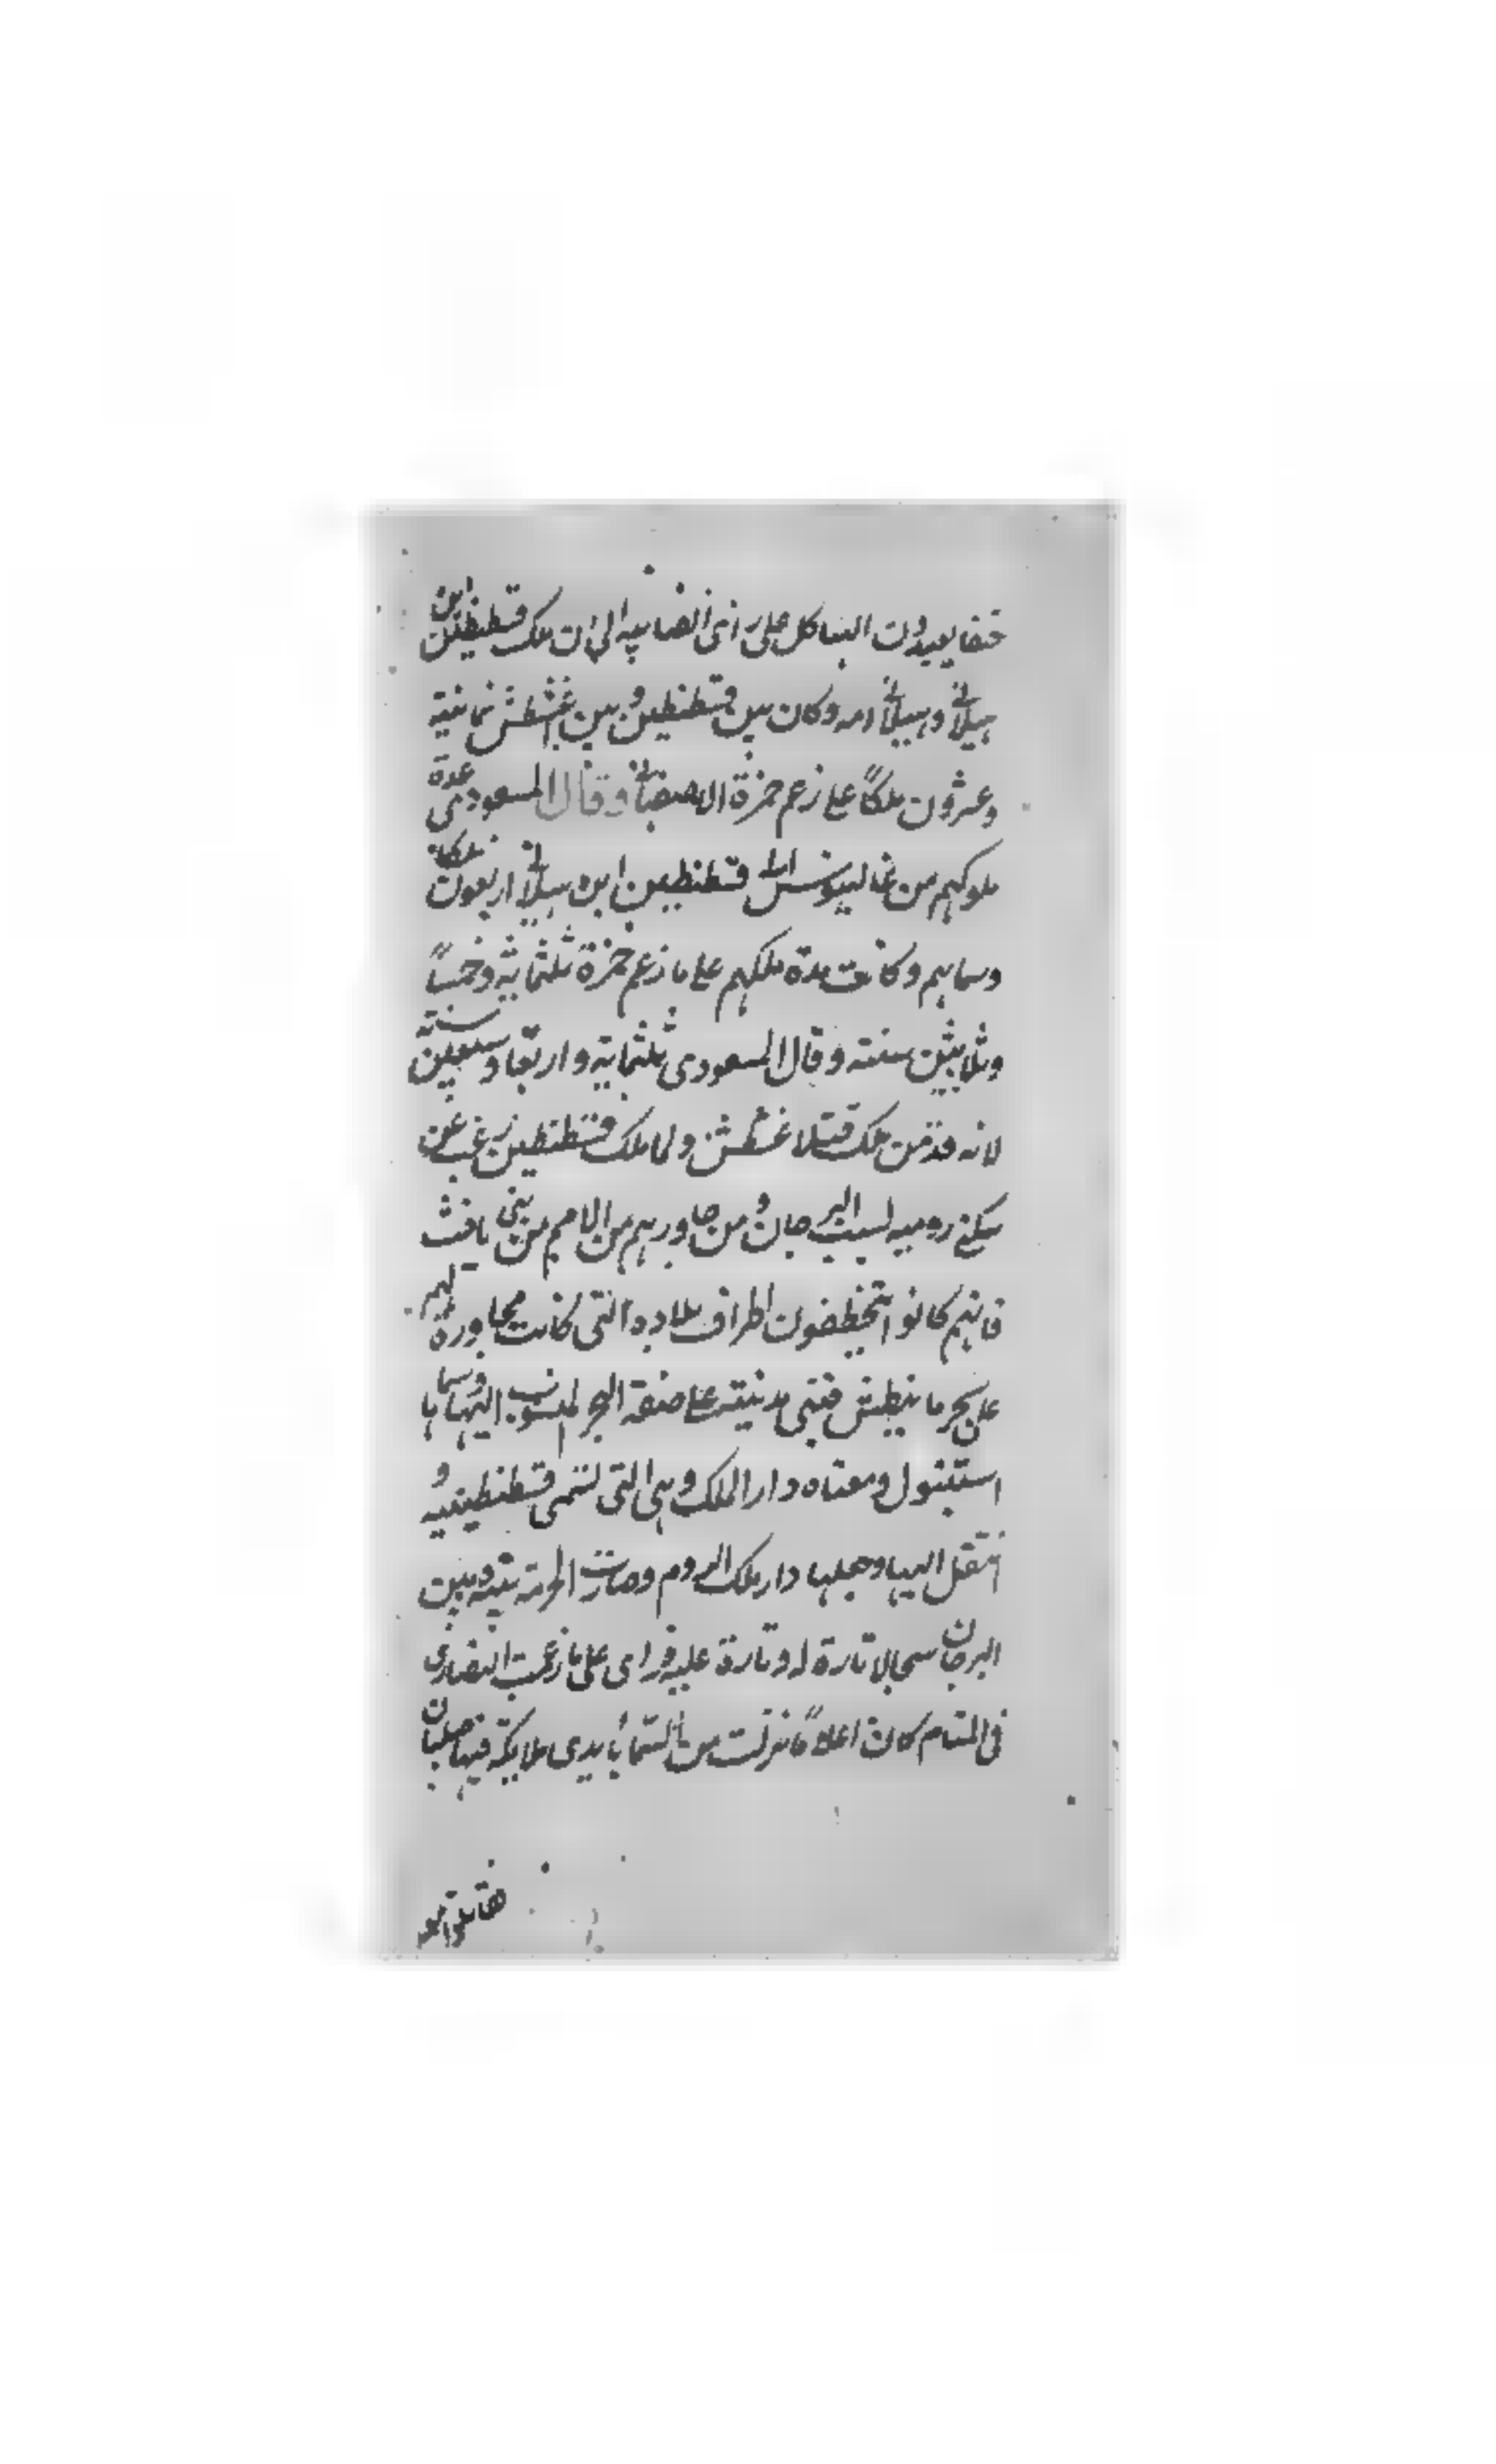 حنفا يعبدون الهياكل على راى الصابيه الى ان ملك قسطنطين ابن
هيلانى وهيلانى امه وكان بين قسطنطين وبين اغشطش ثمانية
وعشرون ملكاً على زعم حمزة الاصفهانى وقال المسعودى عدة
ملوكهم من غاليوس الى قسطنطين ابن هيلانى اربعون ملكا
وسماهم وكانت مدة ملكهم على ما زعم حمزة ثلثماية وخمساً
وثلاثين سنة وقال المسعودى ثلثماية واربعا وسبعين سنة
لانه قدم من ملك قبل اغشطش ولما ملك قسطنطين رغب عن
سكنى روميه لسبب البرجان ومن جاورهم من الامم من بنى يافث
فانهم كانوا يتخطفون اطراف بلاده التى كانت مجاورة لهم
على بحر مانيطش فبنى مدينة على ضفة البحر المنسوب اليها وسماها
استنبول ومعناه دار الملك وهى التى تسمى قسطنطينيه و
انتقل اليها وجعلها دار ملك الروم وصارت الحرب بينه وبين
البرجان سجالا تارة له وتارة عليه فراى على ما زعمت النصارى
فى المنام كان اعلاماً نزلت من السما بأيدى ملايكة فيها صلبان